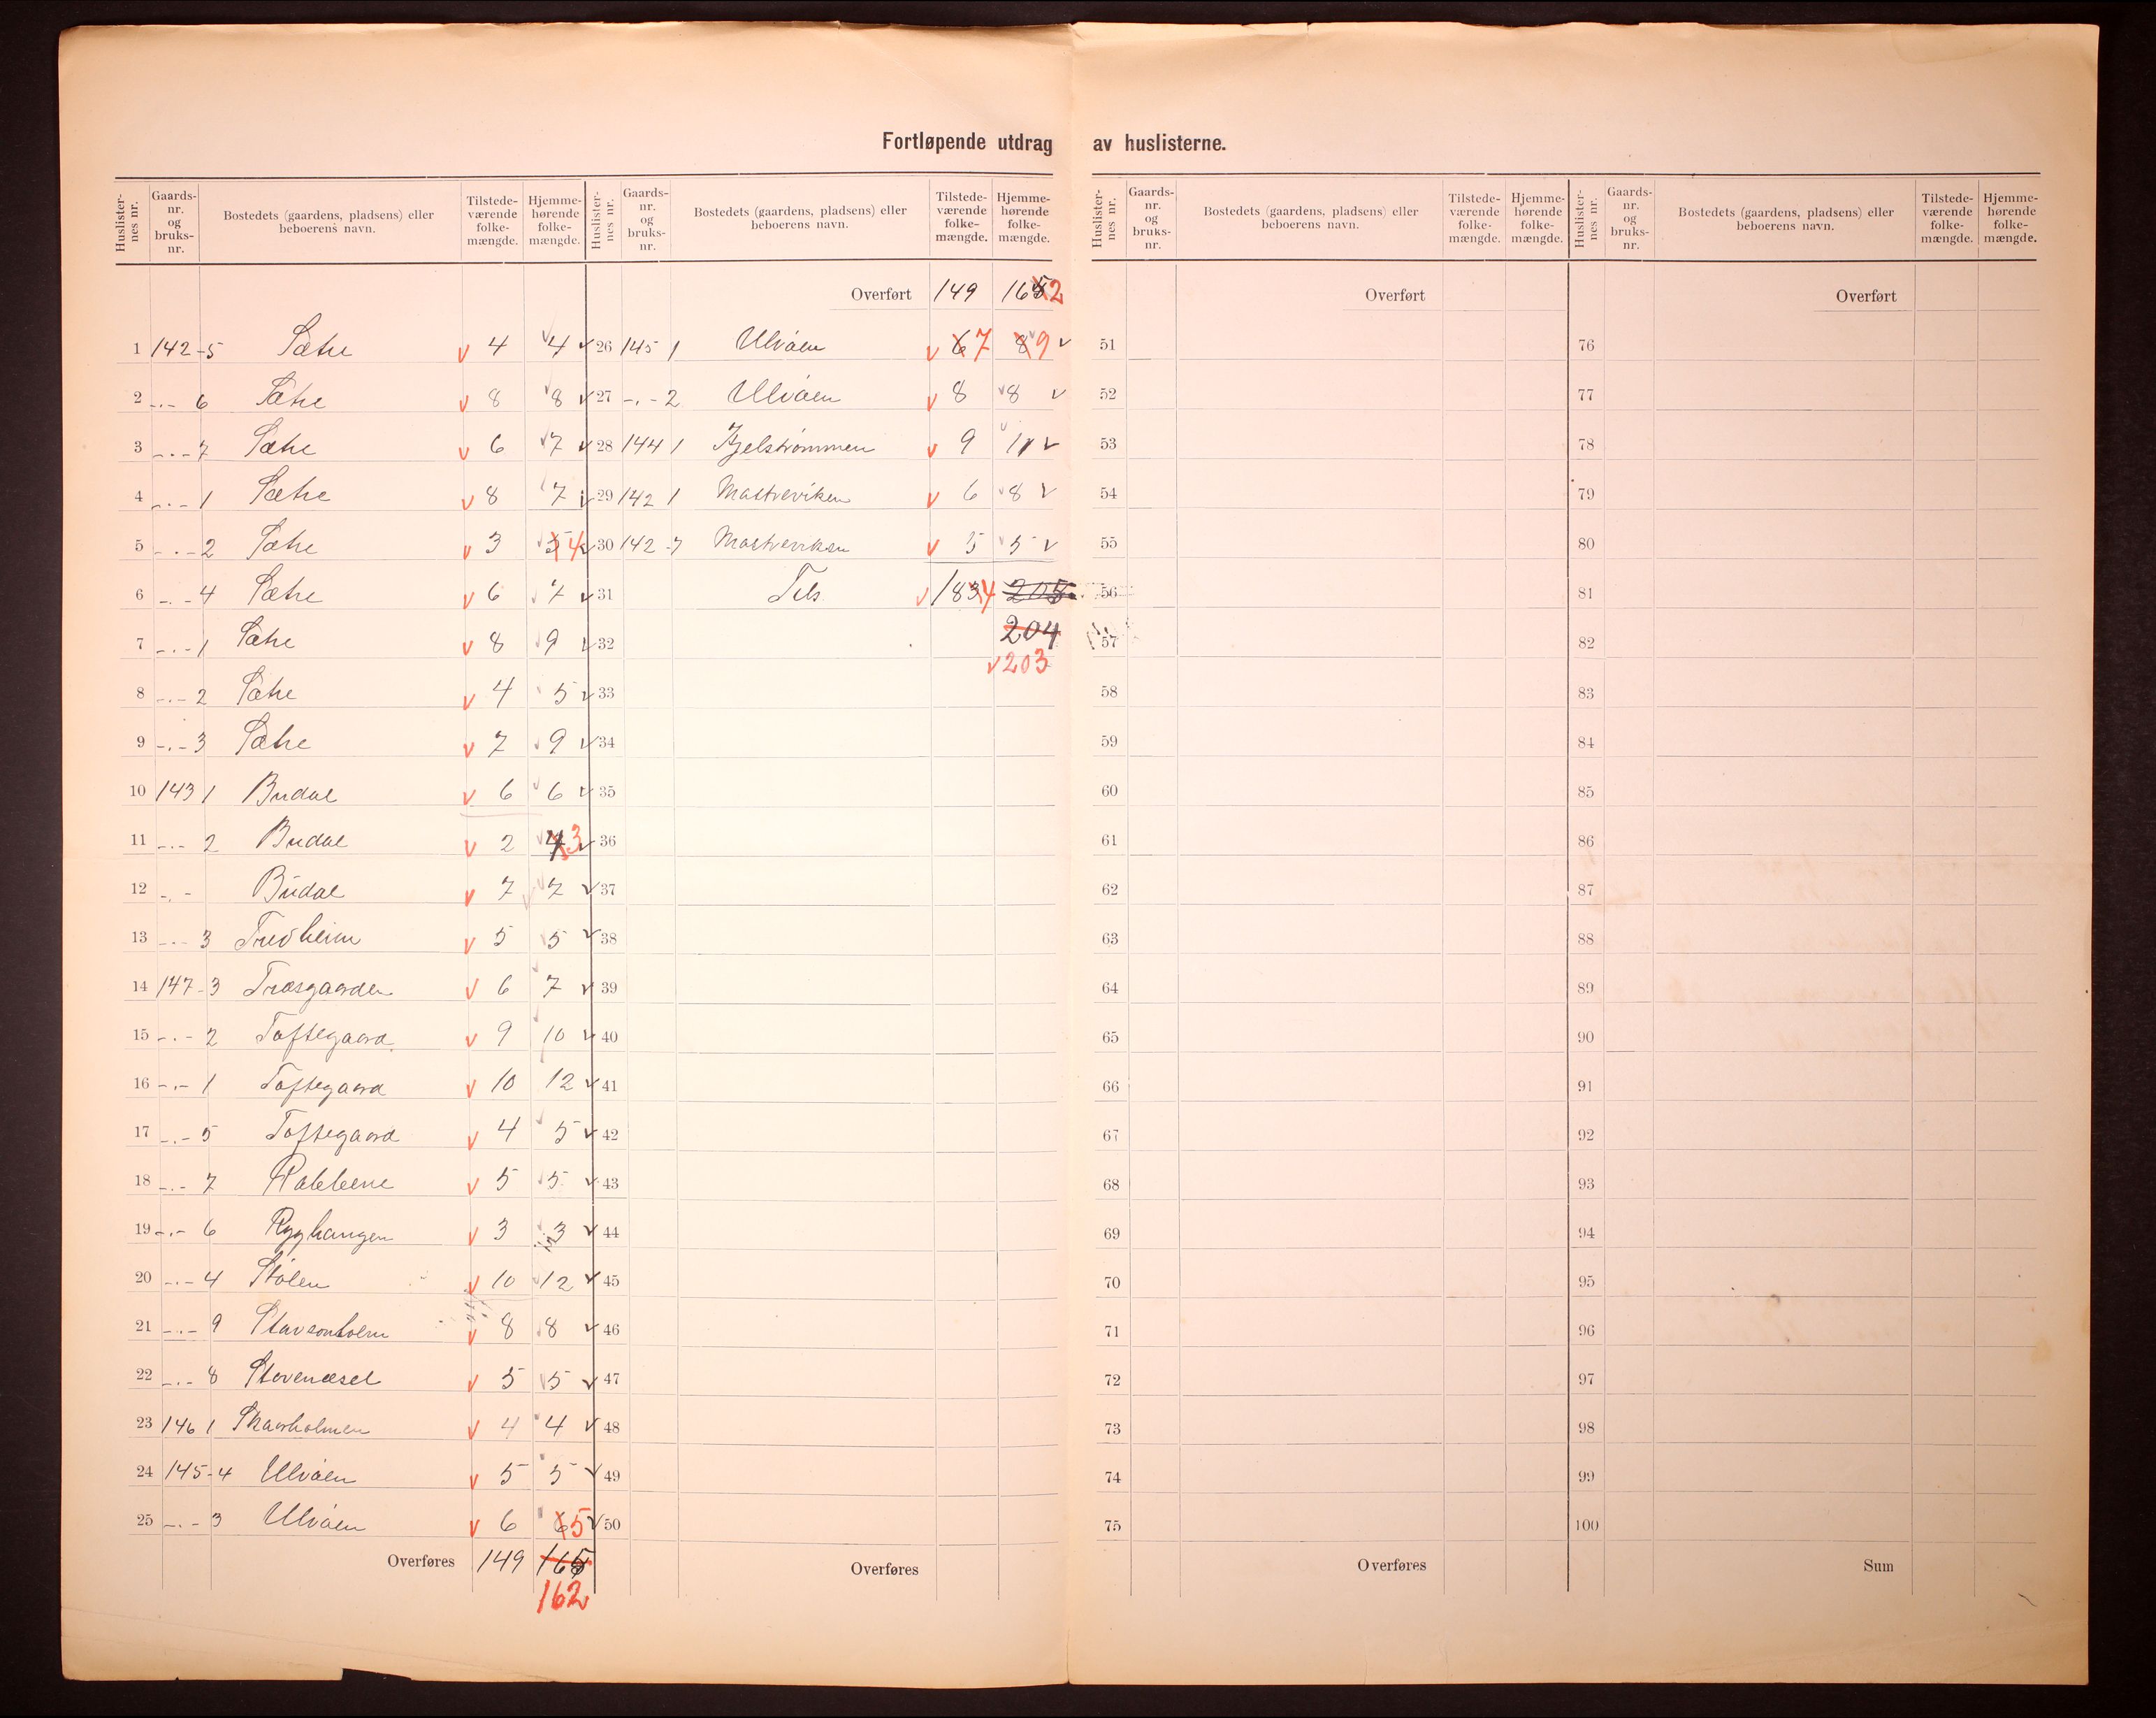 Fortløpende utdrag av huslisterne.
Huslisternes nr. Gaards-nr. og bruks-nr. Bostedets (gaardens, pladsens) eller beboerens navn. Tilstede-værende folke-mængde. Hjemme-hørende folke-mængde.
1 142-5 Sætre 4 4
2 -.- 6 Sætre 8 8
3 -.- 7 Sætre 6 7
4 -.- 1 Sætre 8 7
5 -.- 2 Sætre 3 4
6 -.- 4 Sætre 6 7
7 -.- 1 Sætre 8 9
8 -.- 2 Sætre 4 5
9 -.- 3 Sætre 7 9
10 143 1 Budal 6 6
11 -.- 2 Budal 2 4 3
12 -.- Budal 7 7
13 -.- 3 Fredheim 5 5
14 147-3 Træsgaarden 6 7
15 -.- 2 Toftegaard 9 10
16 -.- 1 Toftegaard 10 12
17 -.- 5 Toftegaard 4 5
18 -.- 7 Rabbene 5 5
19 -.- 6 Ryghaugen 3 3
20 -.- 4 Stölen 10 12
21 -.- 9 8 8
22 -.- 8 Stavenæset 5 5
23 146 1 Skaarholmen 4 4
24 145-4 Ulvöen 5 5
25 -.- 3 Ulvöen 6 6 5
Overføres 149 165
162
Huslisternes nr. Gaards-nr. og bruks-nr. Bostedets (gaardens, pladsens) eller beboerens navn. Tilstede-værende folke-mængde. Hjemme-hørende folke-mængde.
Overført 149 165 2
26 145 1 Ulvöen 6 7 8 9
27 -.- 2 Ulvöen 8 8
28 144 1 Kjelströmmen 9 11
29 142 1 Mastreviken 6 8
30 142-7 Mastreviken 5 5
31 Tils. 183 4 205
32 204
203
33
34
35
36
37
38
39
40
41
42
43
44
45
46
47
48
49
50
Overføres
Huslisternes nr. Gaards-nr. og bruks-nr. Bostedets (gaardens, pladsens) eller beboerens navn. Tilstede-værende folke-mængde. Hjemme-hørende folke-mængde.
Overført
51
52
53
54
55
56
57
58
59
60
61
62
63
64
65
66
67
68
69
70
71
72
73
74
75
Overføres
Huslisternes nr. Gaards-nr. og bruks-nr. Bostedets (gaardens, pladsens) eller beboerens navn. Tilstede-værende folke-mængde. Hjemme-hørende folke-mængde.
Overført
76
77
78
79
80
81
82
83
84
85
86
87
88
89
90
91
92
93
94
95
96
97
98
99
100
Sum